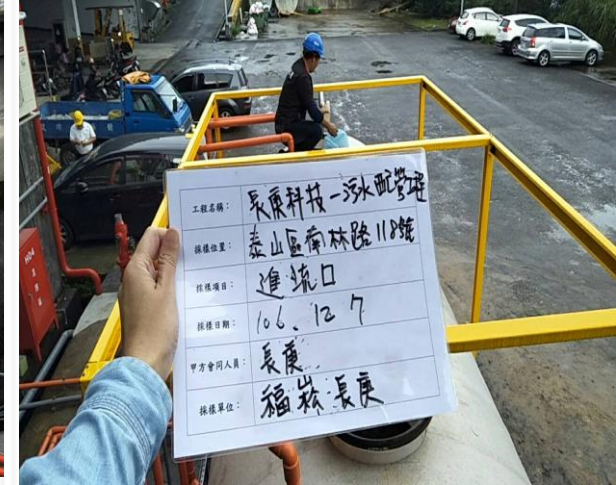 工程名稱： 長庚科技-污水配管工程
採樣位置： 泰山區南林路118號
採樣項目： 進流口
採樣日期： 106. 12 7
甲方會同人員： 長庚
採樣單位： 福崧 長庚